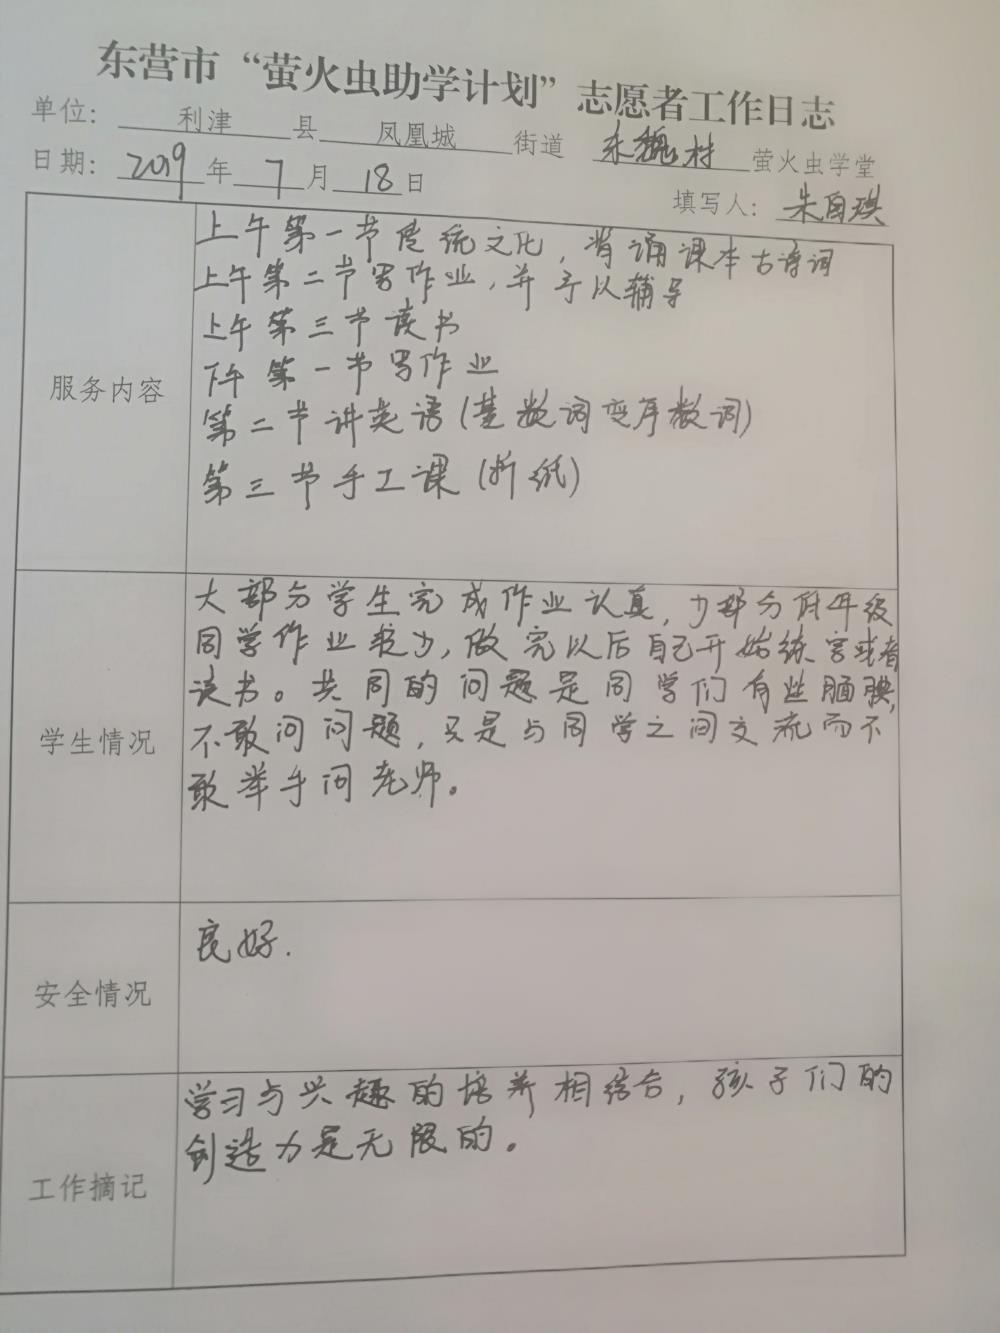 东营市“萤火虫助学计划”志愿者工作日志
单位： 利津 县 凤凰城 街道 东魏村 萤火虫学堂
日期： 2019 年 7 月 18 日
填写人： 朱自琪
服务内容
上午第一节传统文化，背诵课本古诗词
上午第二节写作业，并予以辅导
上午第三节读书
下午第一节写作业
第二节讲英语(基数词变序数词)
第三节手工课(折纸)
学生情况
大部分学生完成作业认真，少部分低年级
同学作业较少，做完以后自己开始练字或者
读书。共同的问题是同学们有些腼腆，
不敢问问题，只是与同学之间交流而不
敢举手问老师。
安全情况
良好.
工作摘记
学习与兴趣的培养相结合，孩子们的
创造力是无限的。